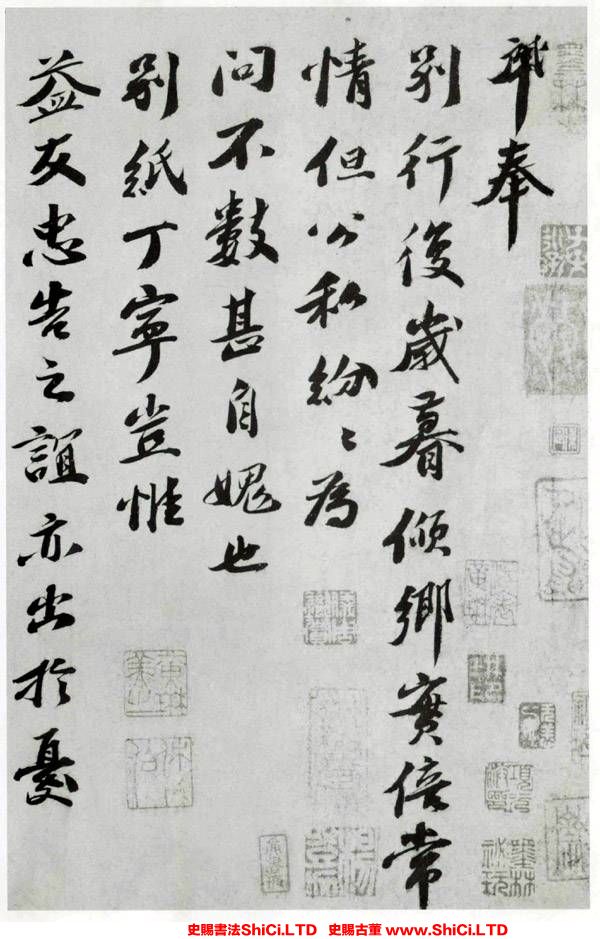 奉
別行後歲暮傾鄉實倍常
情但公私紛〻為
問不數甚自媿也
別紙丁寧豈惟
益友忠告之誼亦出於憂
史賜書法ShiCi.LTD 史賜古董 www.ShiCi.LTD